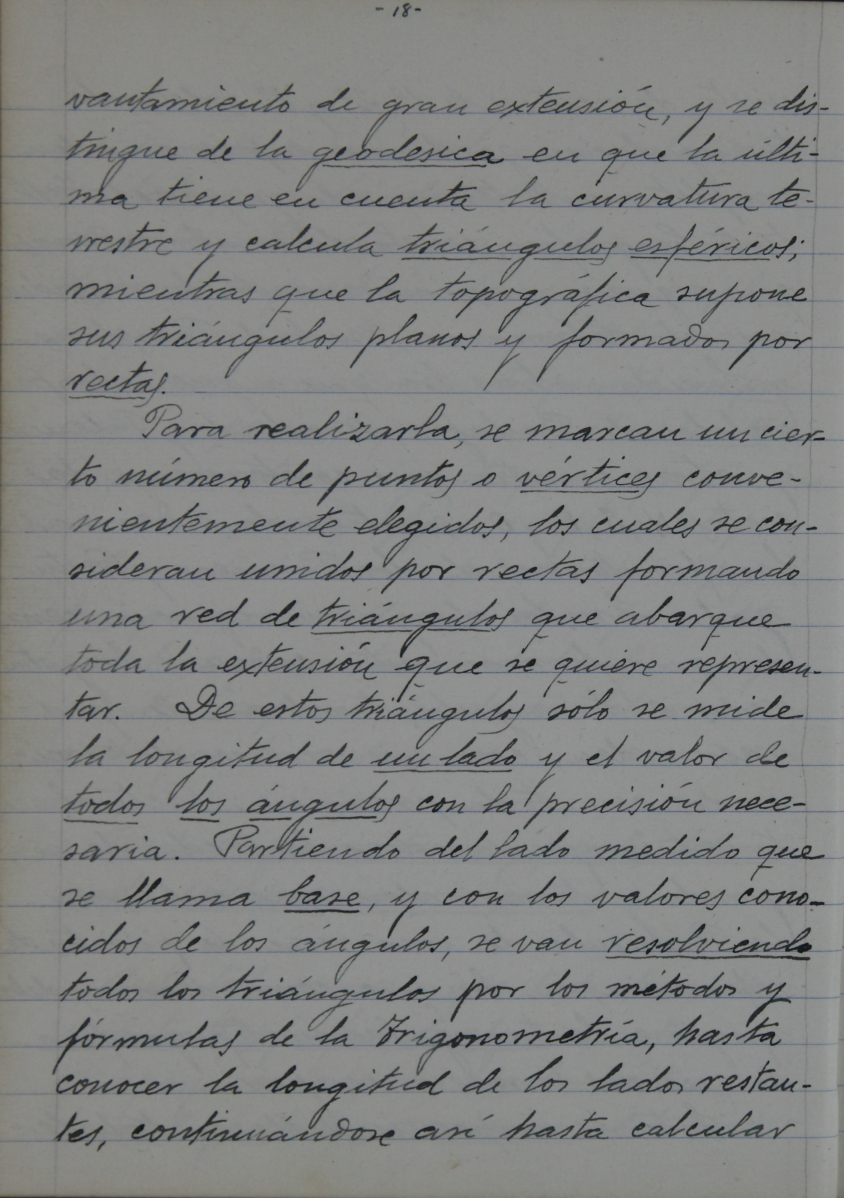 - 18 -
vantamiento de gran extensión, y se dis-
tingue de la geodesica en que la últi-
ma tiene en cuenta la curvatura te-
rrestre y calcula triángulos esféricos;
mientras que la topográfica supone
sus triángulos planos y formados por
rectas.
Para realizarla, se marcan un cier-
to número de puntos o vértices conve-
nientemente elegidos, los cuales se con-
sideran unidos por rectas formando
una red de triángulos que abarque
toda la extensión que se quiere represen-
tar. De estos triángulos sólo se mide
la longitud de un lado y el valor de
todos los ángulos con la precisión nece-
saria. Partiendo del lado medido que
se llama base, y con los valores cono-
cidos de los ángulos, se van resolviendo
todos los triángulos por los métodos y
fórmulas de la Trigonometría, hasta
conocer la longitud de los lados restan-
tes, continuándose así hasta calcular